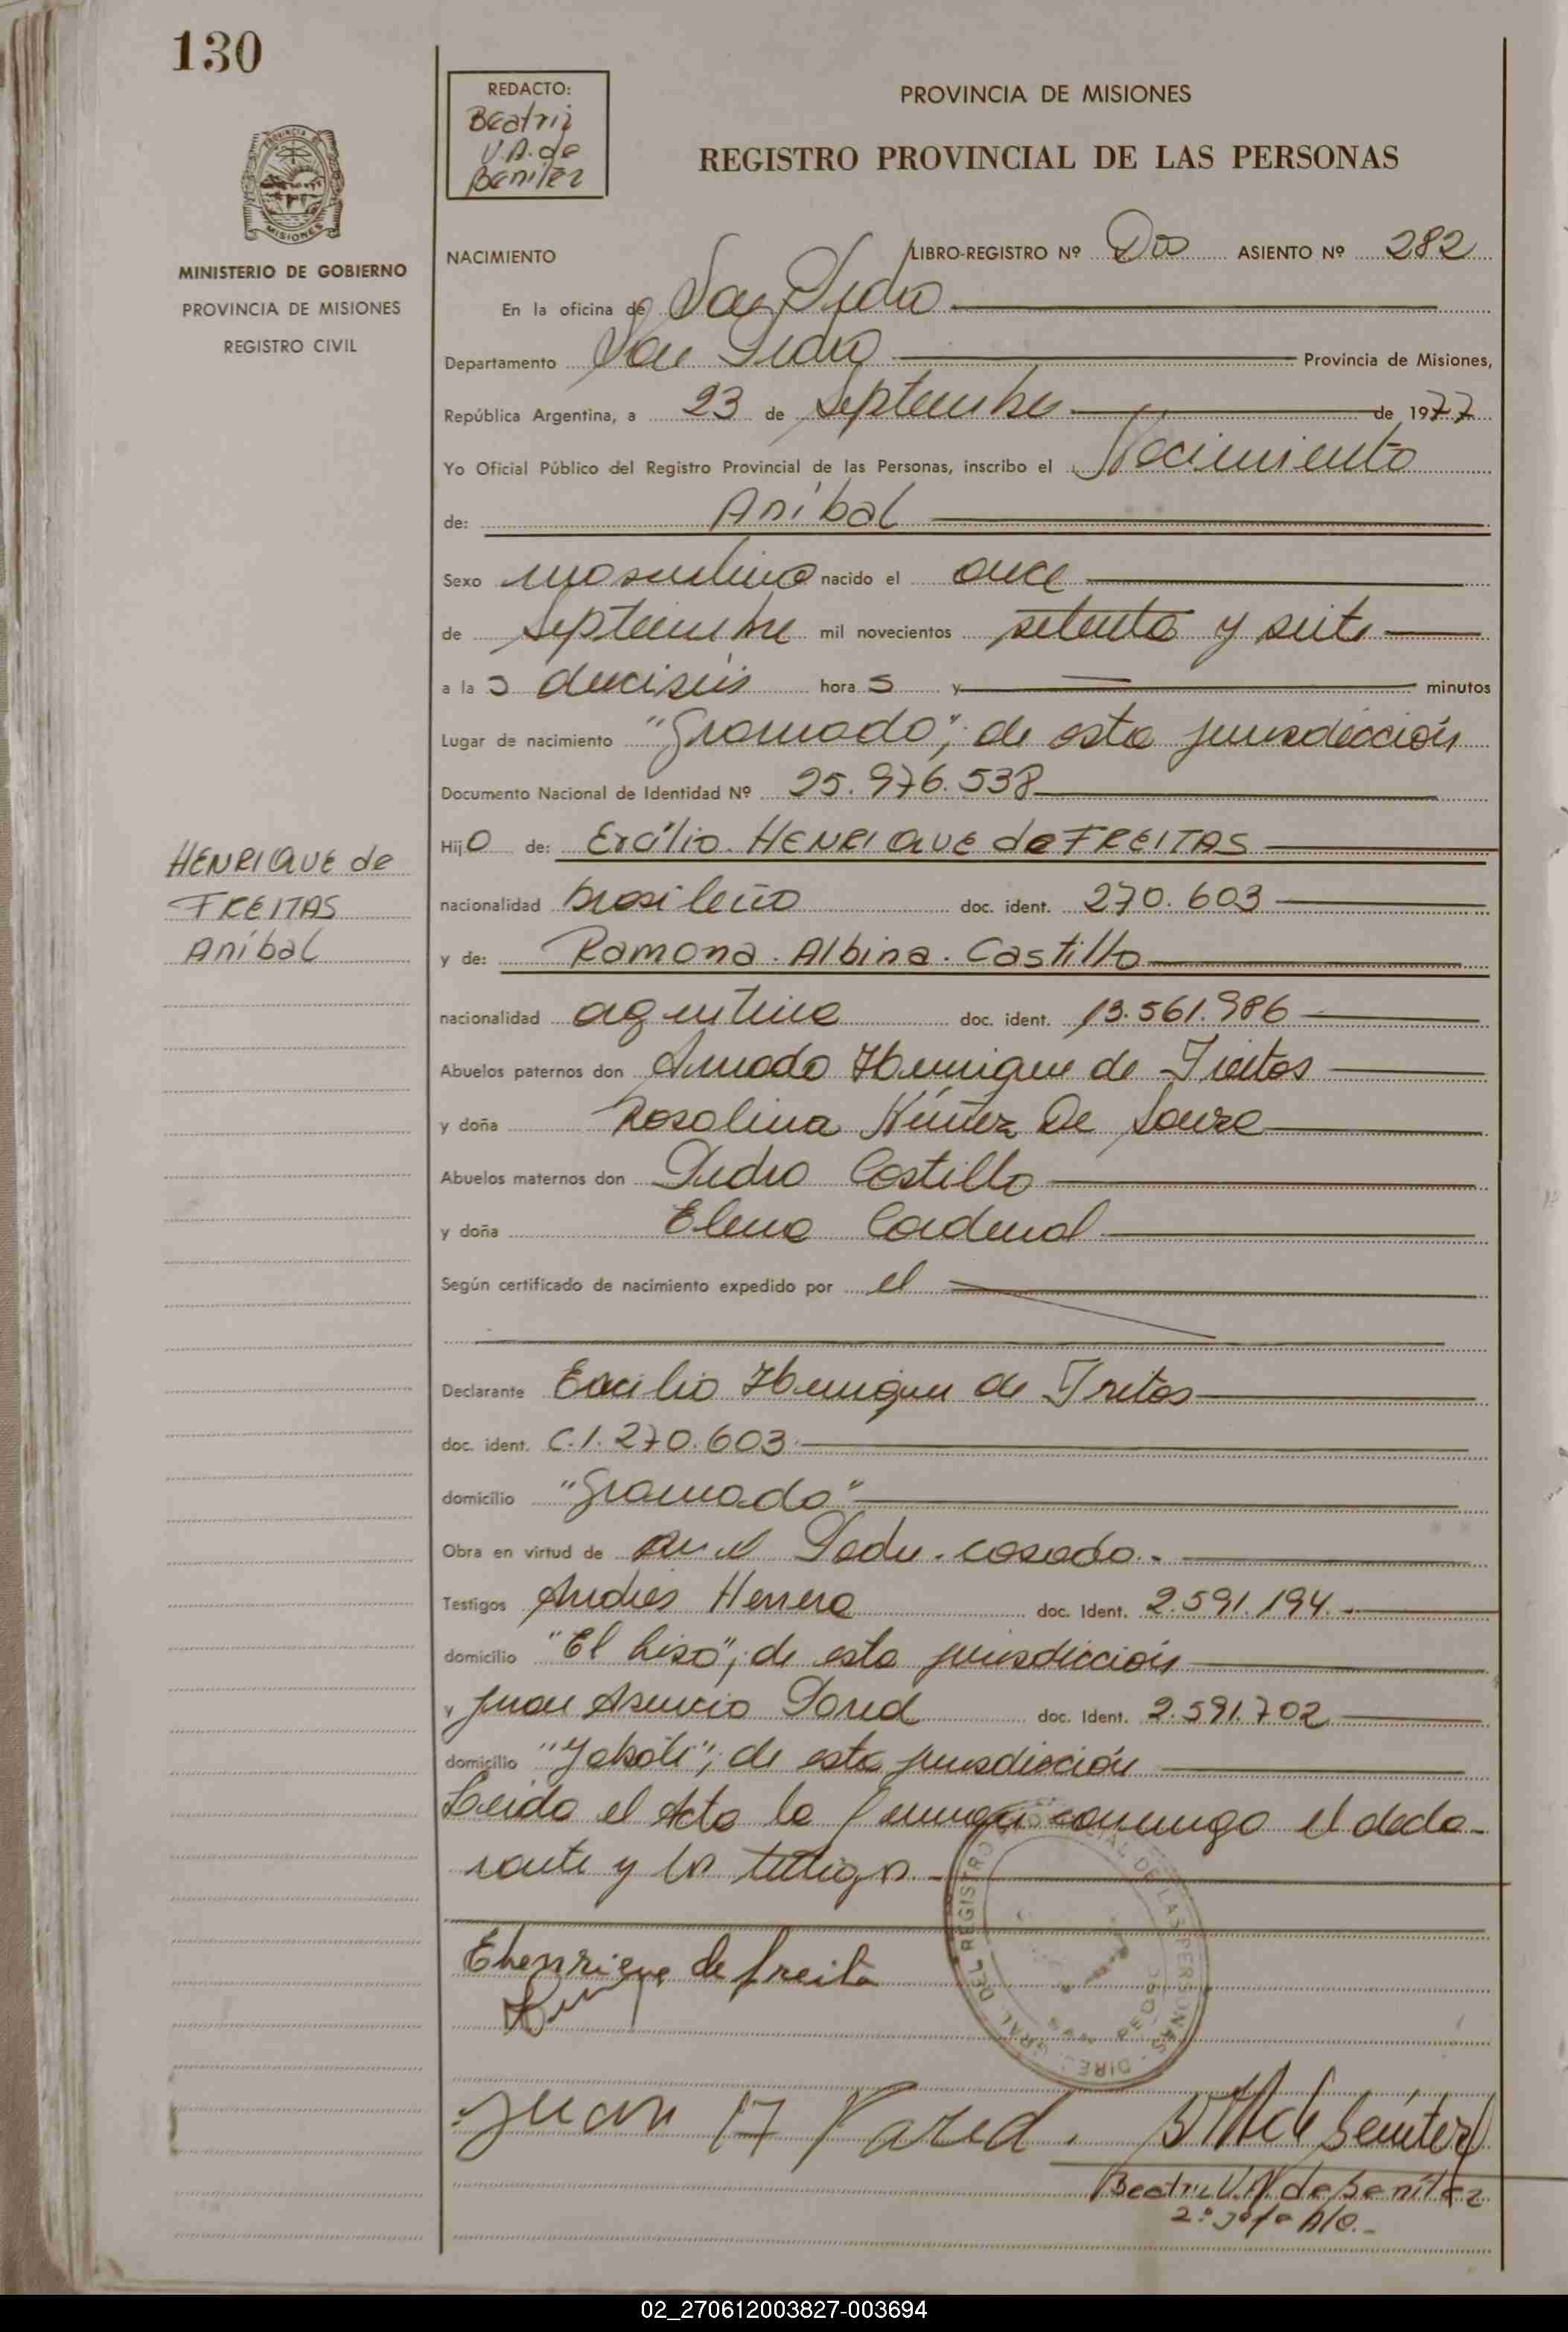 130
REDACTO:
Beatriz
V.A. de
Benítez
PROVINCIA DE MISIONES
REGISTRO PROVINCIAL DE LAS PERSONAS
MISIONES
MINISTERIO DE GOBIERNO
PROVINCIA DE MISIONES
REGISTRO CIVIL
NACIMIENTO LIBRO-REGISTRO Nº Dos ASIENTO Nº 282
En la oficina de San Pedro
Departamento San Pedro Provincia de Misiones,
República Argentina, a 23 de Septiembre de 1977
Yo Oficial Público del Registro Provincial de las Personas, inscribo el Nacimiento
de: Aníbal
Sexo masculino nacido el once
de Septiembre mil novecientos setenta y siete
a las dieciséis horas y minutos
Lugar de nacimiento "Gramado"; de esta jurisdicción
Documento Nacional de Identidad Nº 25.976.538
Hijo de: Ercilio. HENRIQUE de FREITAS
HENRIQUE de
FREITAS
Aníbal
nacionalidad brasileño doc. ident. 270.603
y de: Ramona. Albina. Castillo
nacionalidad argentina doc. ident. 13.561.986
Abuelos paternos don Amado Henrique de Freitas
y doña Rosalina Núñez De Souza
Abuelos maternos don Pedro Castillo
y doña Elena Cardenal
Según certificado de nacimiento expedido por el
Declarante Ercilio Henrique de Freitas
doc. ident. C.I. 270.603
domicilio "Gramado"
Obra en virtud de ser el Padre. casado.-
Testigos Andrés Herrera doc. Ident. 2.591.194.-
domicilio "El Liso"; de esta jurisdicción
y Juan Asencio Pared doc. Ident. 2.591.702
domicilio de esta jurisdicción
Leída el Acta la firman conmigo el decla-
rante y los testigos.-
EHenrique de freita
DIREC. GRAL. DEL REGISTRO PROVINCIAL DE LAS PERSONAS
Juan A Pared.
de Benítez
Beatriz V.A de Benítez
2º Jefe A/C.-
02_270612003827-003694